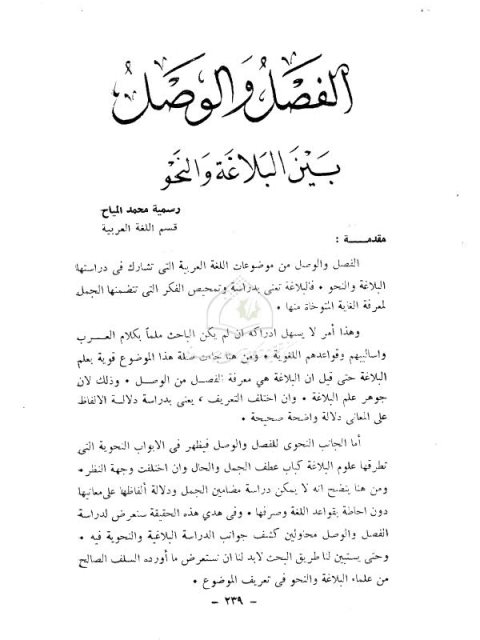 الفصل والوصل
بين البلاغة والنحو
رسمية محمد المياح
قسم اللغة العربية
مقدمـــة :
الفصل والوصل من موضوعات اللغة العربية التى تشارك فى دراستها
البلاغة والنحو • فالبلاغة تعنى بدراسة وتمحيص الفكر التى تتضمنها الجمل
لمعرفة الغاية المتوخاة منها •
وهذا أمر لا يسهل ادراكه ان لم يكن الباحث ملماً بكلام العـــرب
واساليبهم وقواعدهم اللغوية • ومن هنا جاءت صلة هذا الموضوع قوية بعلم
البلاغة حتى قيل ان البلاغة هي معرفة الفصـل من الوصـل • وذلك لان
جوهر علم البلاغة • وان اختلف التعريف ، يعنى بدراسة دلالـة الالفاظ
على المعانى دلالة واضحة صحيحة •
أما الجانب النحوى للفصل والوصل فيظهر فى الابواب النحوية التى
تطرقها علوم البلاغة كباب عطف الجمل والحال وان اختلفت وجهة النظر •
ومن هنا يتضح انه لا يمكن دراسة مضامين الجمل ودلالة ألفاظها على معانيها
دون احاطة بقواعد اللغة وصرفها • وفى هدي هذه الحقيقة سنعرض لدراسة
الفصل والوصل محاولين كشف جوانب الدراسة البلاغية والنحوية فيه •
وحتى يستبين لنا طريق البحث لابد لنا ان نستعرض ما أورده السلف الصالح
من علماء البلاغة والنحو فى تعريف الموضوع •
- ٢٣٩ -